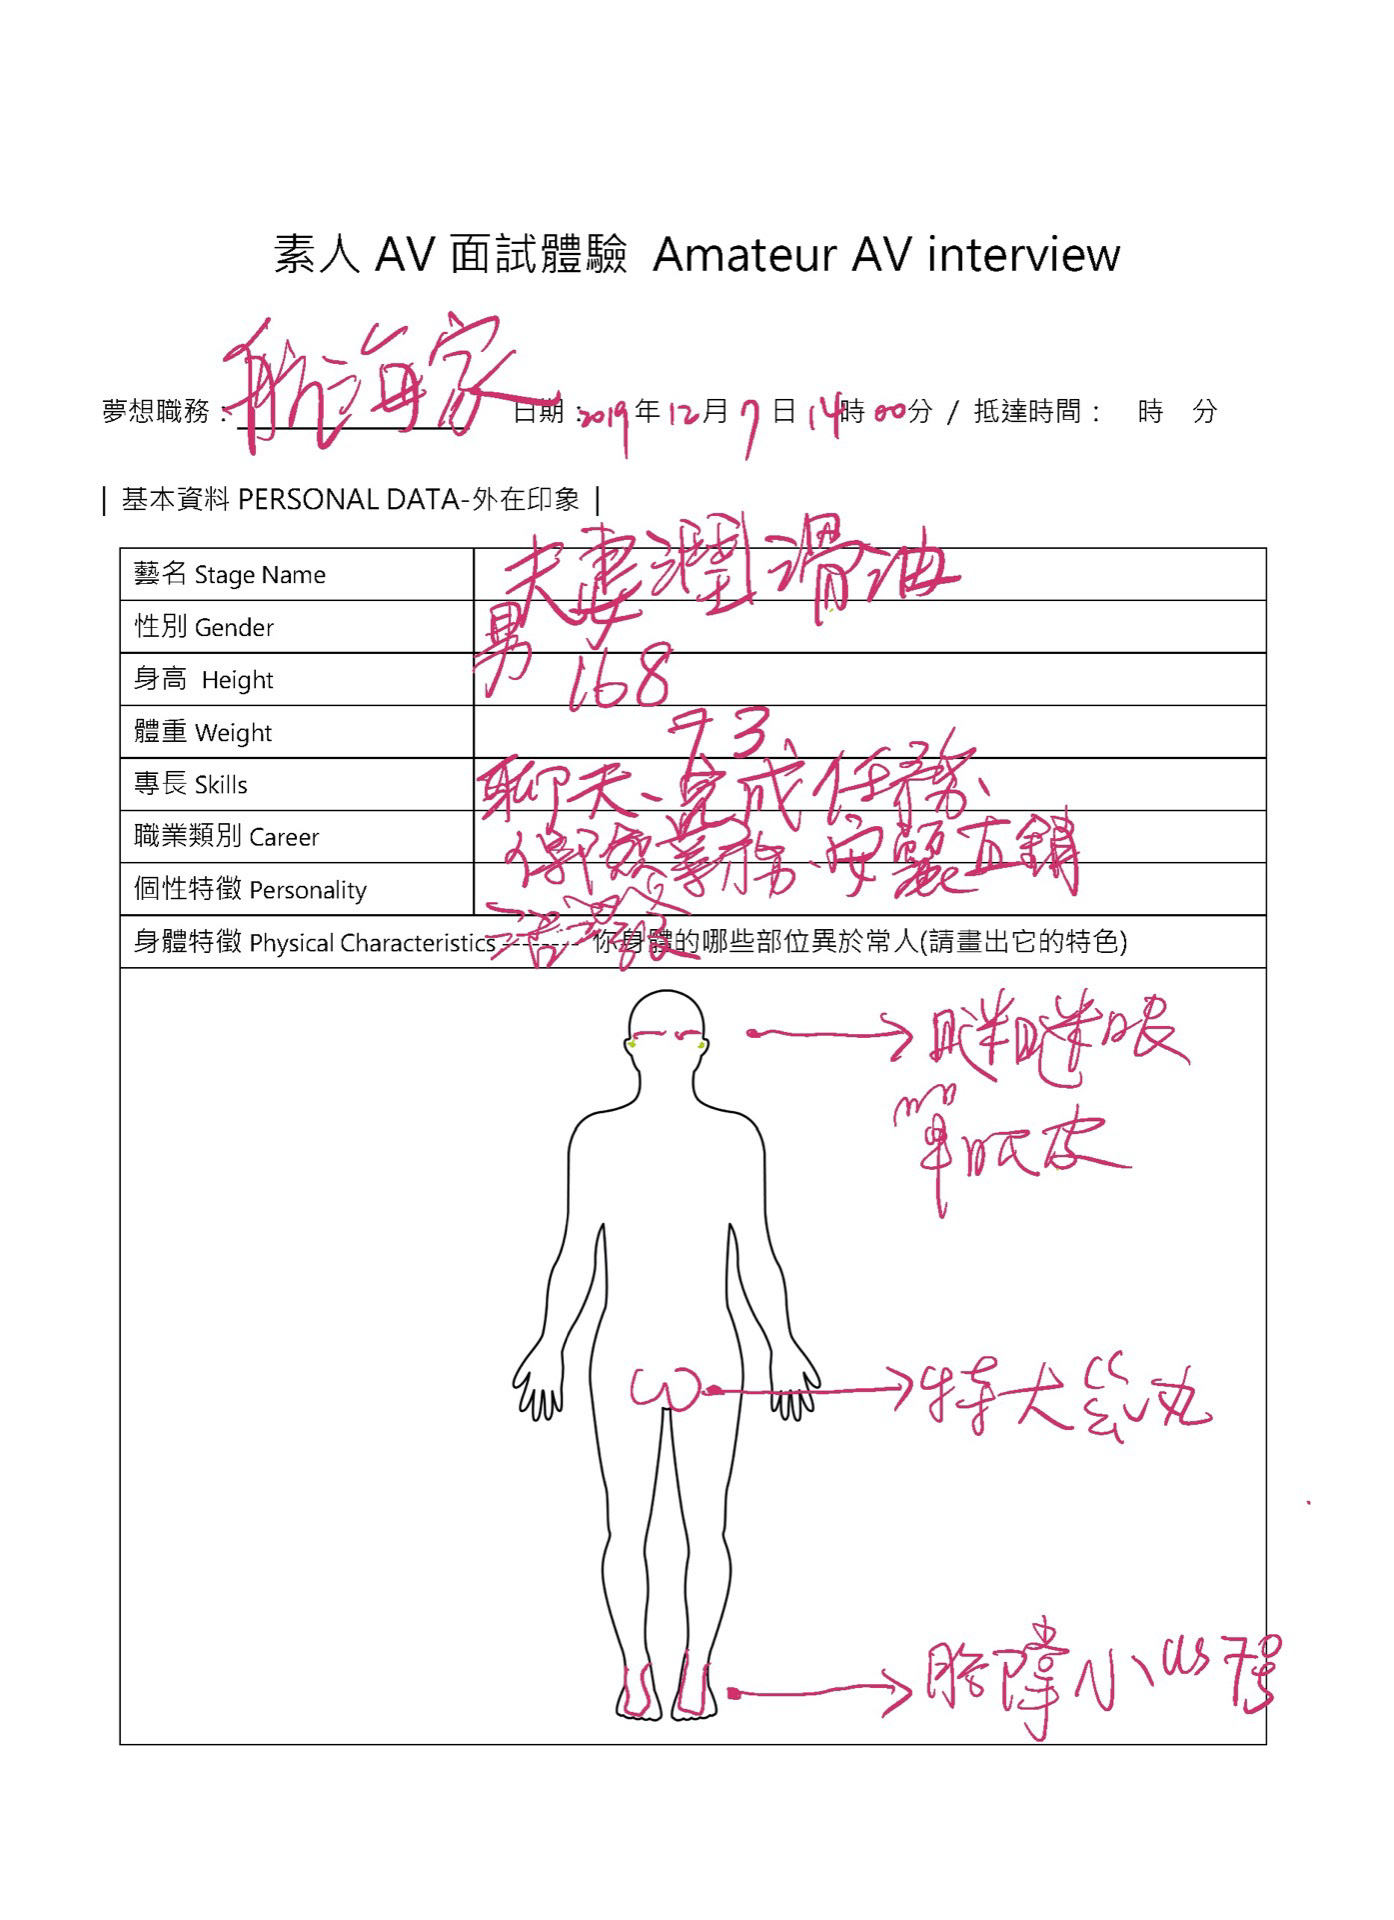 素人 AV 面試體驗 Amateur AV interview
夢想職務：航海家 日期：2019年12月7日14時00分 / 抵達時間： 時 分
| 基本資料 PERSONAL DATA-外在印象 |
藝名 Stage Name 夫妻潤滑油
性別 Gender 男
身高 Height 168
體重 Weight 73
專長 Skills 聊天、完成任務、
職業類別 Career 保險業務、安麗直銷
個性特徵 Personality 活潑
身體特徵 Physical Characteristics --------- 你身體的哪些部位異於常人(請畫出它的特色)
瞇瞇眼
單眼皮
特大號丸
腳掌小 US 7號